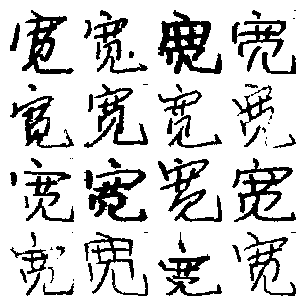 宽宽宽宽
宽宽宽宽
宽宽宽宽
宽宽宽宽